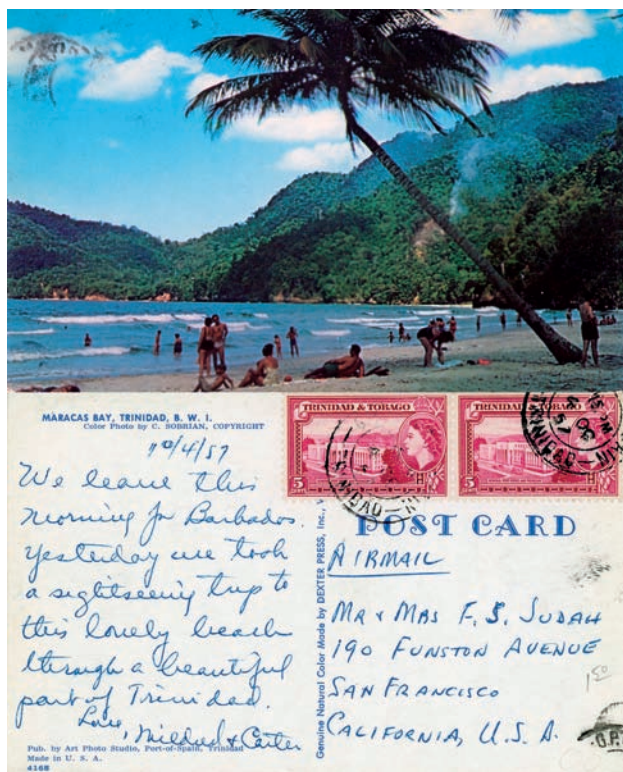 MARACAS BAY, TRINIDAD, B. W. I.
Color Photo by C. SOBRIAN, COPYRIGHT
10/4/57
We leave this
morning for Barbados.
Yesterday we took
a sightseeing trip to
this lovely beach
through a beautiful
part of Trinidad.
Love,
Mildred & Carter
Pub. by Art Photo Studio, Port-of-Spain, Trinidad
Made in U. S. A.
4168
Genuine Natural Color Made by DEXTER PRESS, Inc.,
TRINIDAD & TOBAGO
5
TRINIDAD & TOBAGO
5
POST CARD
AIRMAIL
MR & MRS F. S. JUDAH
190 FUNSTON AVENUE
SAN FRANCISCO
CALIFORNIA, U. S. A.
150
G.P.